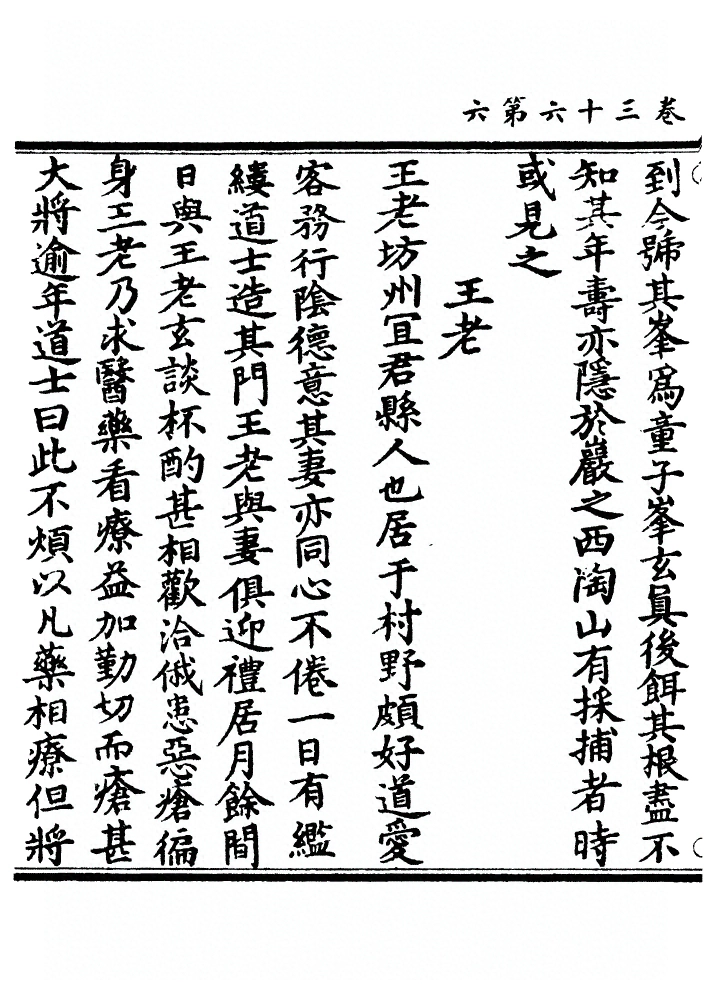 卷三十六第六
到今號其峯爲童子峯玄真後餌其根盡不
知其年壽亦隱於巖之西陶山有採捕者時
或見之
王老
王老坊州冝君縣人也居于村野頗好道愛
客務行陰德意其妻亦同心不倦一日有繿
縷道士造其門王老與妻俱迎禮居月餘間
日與王老玄談杯酌甚相歡洽俄患惡瘡徧
身王老乃求醫藥看療益加勤切而瘡甚
大將逾年道士曰此不煩以凡藥相療但將